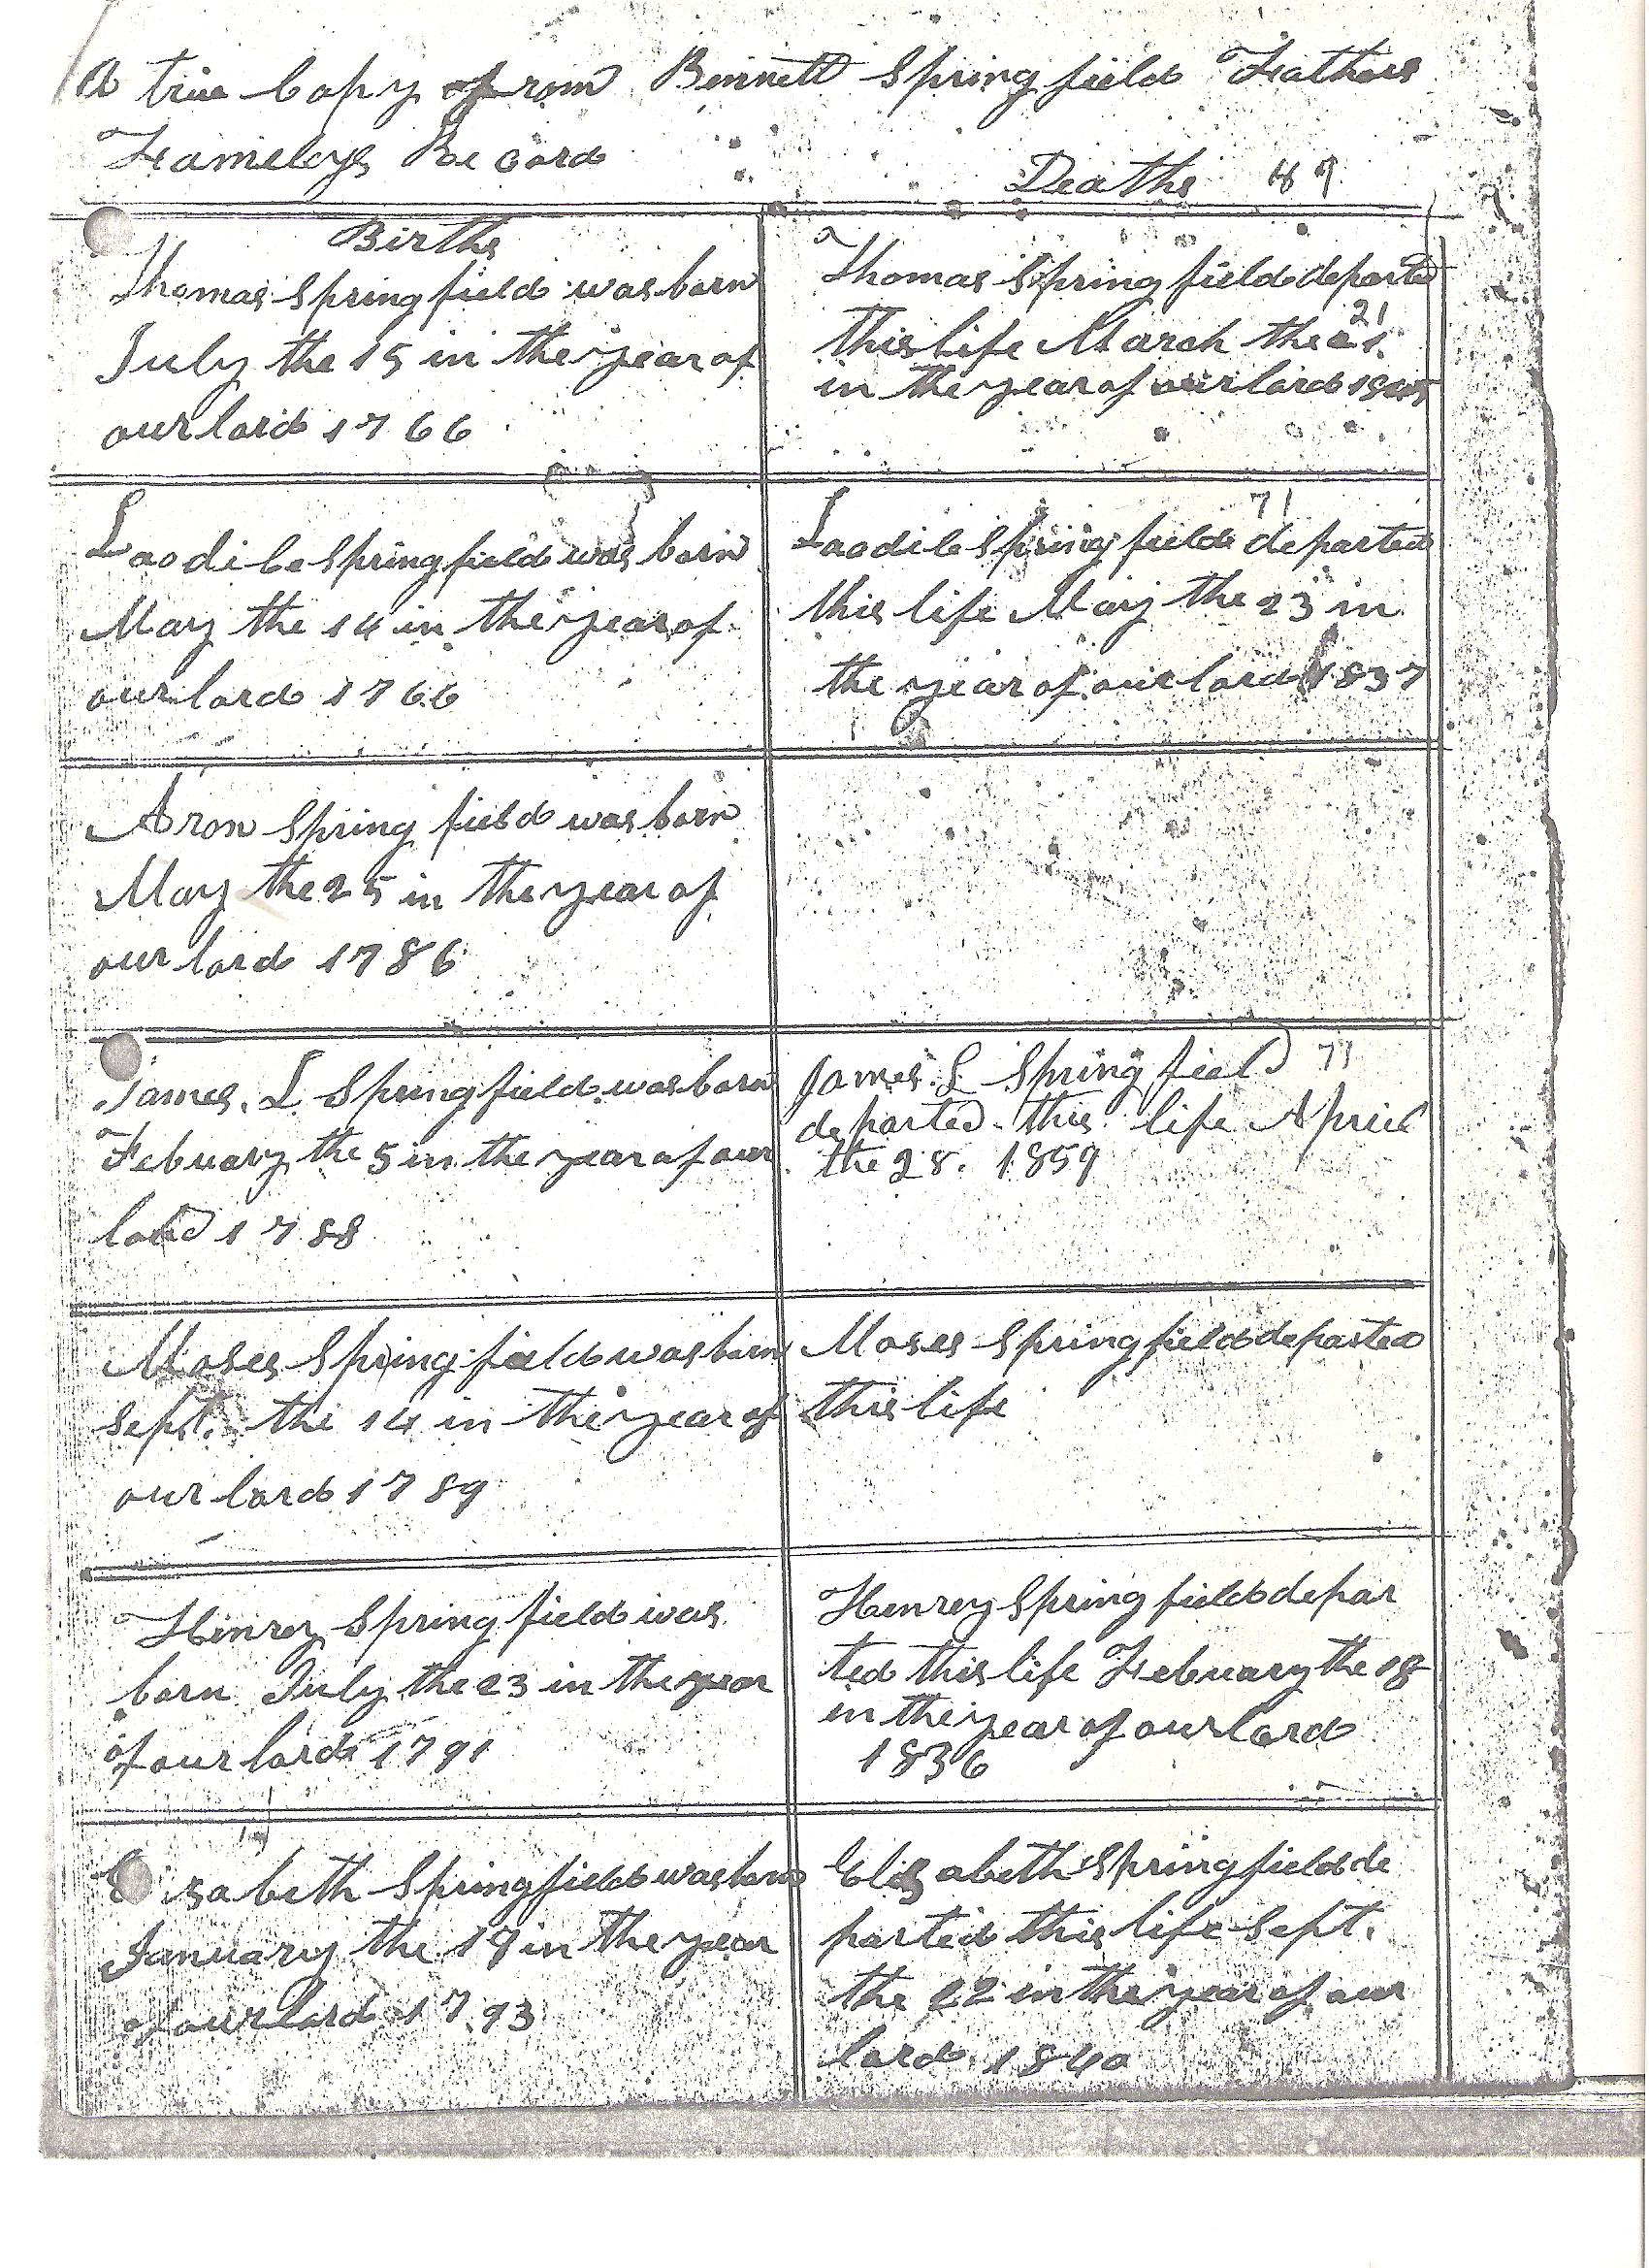 A true Copy from Bennett Springfield Fathers
Fameleys Record
Deaths
Births
Thomas Springfield was born
July the 15 in the year of
our lord 1766
Thomas Springfield departed
this life March the 21
21
in the year of our lord
Laodice Springfield was born
May the 14 in the year of
our lord 1766
71
Laodice Springfield departed
this life May the 23 in
the year of our lord 1837
Aron Springfield was born
May the 25 in the year of
our lord 1786
James. L Springfield was born
February the 5 in the year of our
lord 1788
James. L Springfield 71
departed this life Apriel
the 28. 1859
Moses Springfield was born
Sept. the 14 in the year of
our lord 1789
Moses Springfield departed
this life
Henrey Springfield was
born July the 23 in the year
of our lord 1791
Henrey Springfield depar
ted this life February the 18
in the year of our Lord
1836
zabeth Springfield was born
January the 19 in the year
of our Lord 1793
Elizabeth Springfield de
parted this life Sept.
the 22 in the year of our
lord 1840